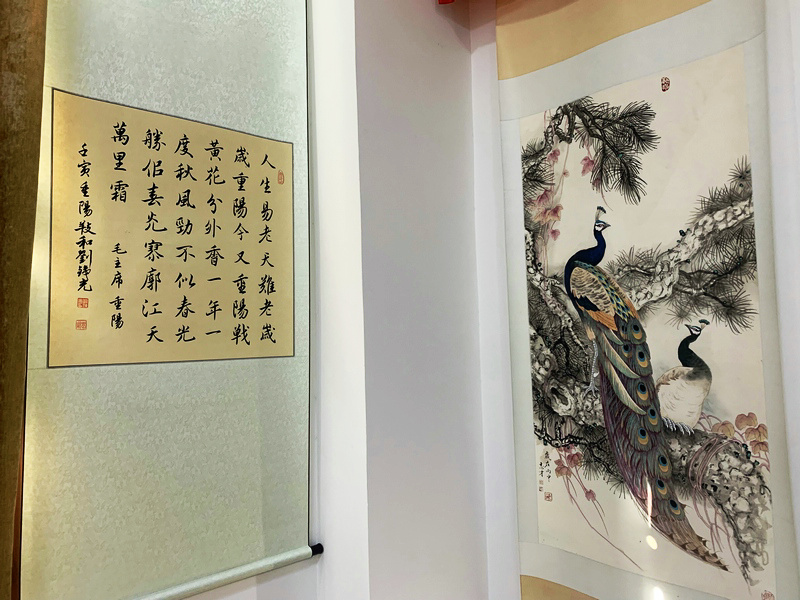 人生易老天難老歲
歲重陽今又重陽戰
黃花分外香一年一
度秋風勁不似春光
勝佀春光寥廓江天
萬里霜 毛主席重陽
壬寅重陽
歲在丙申